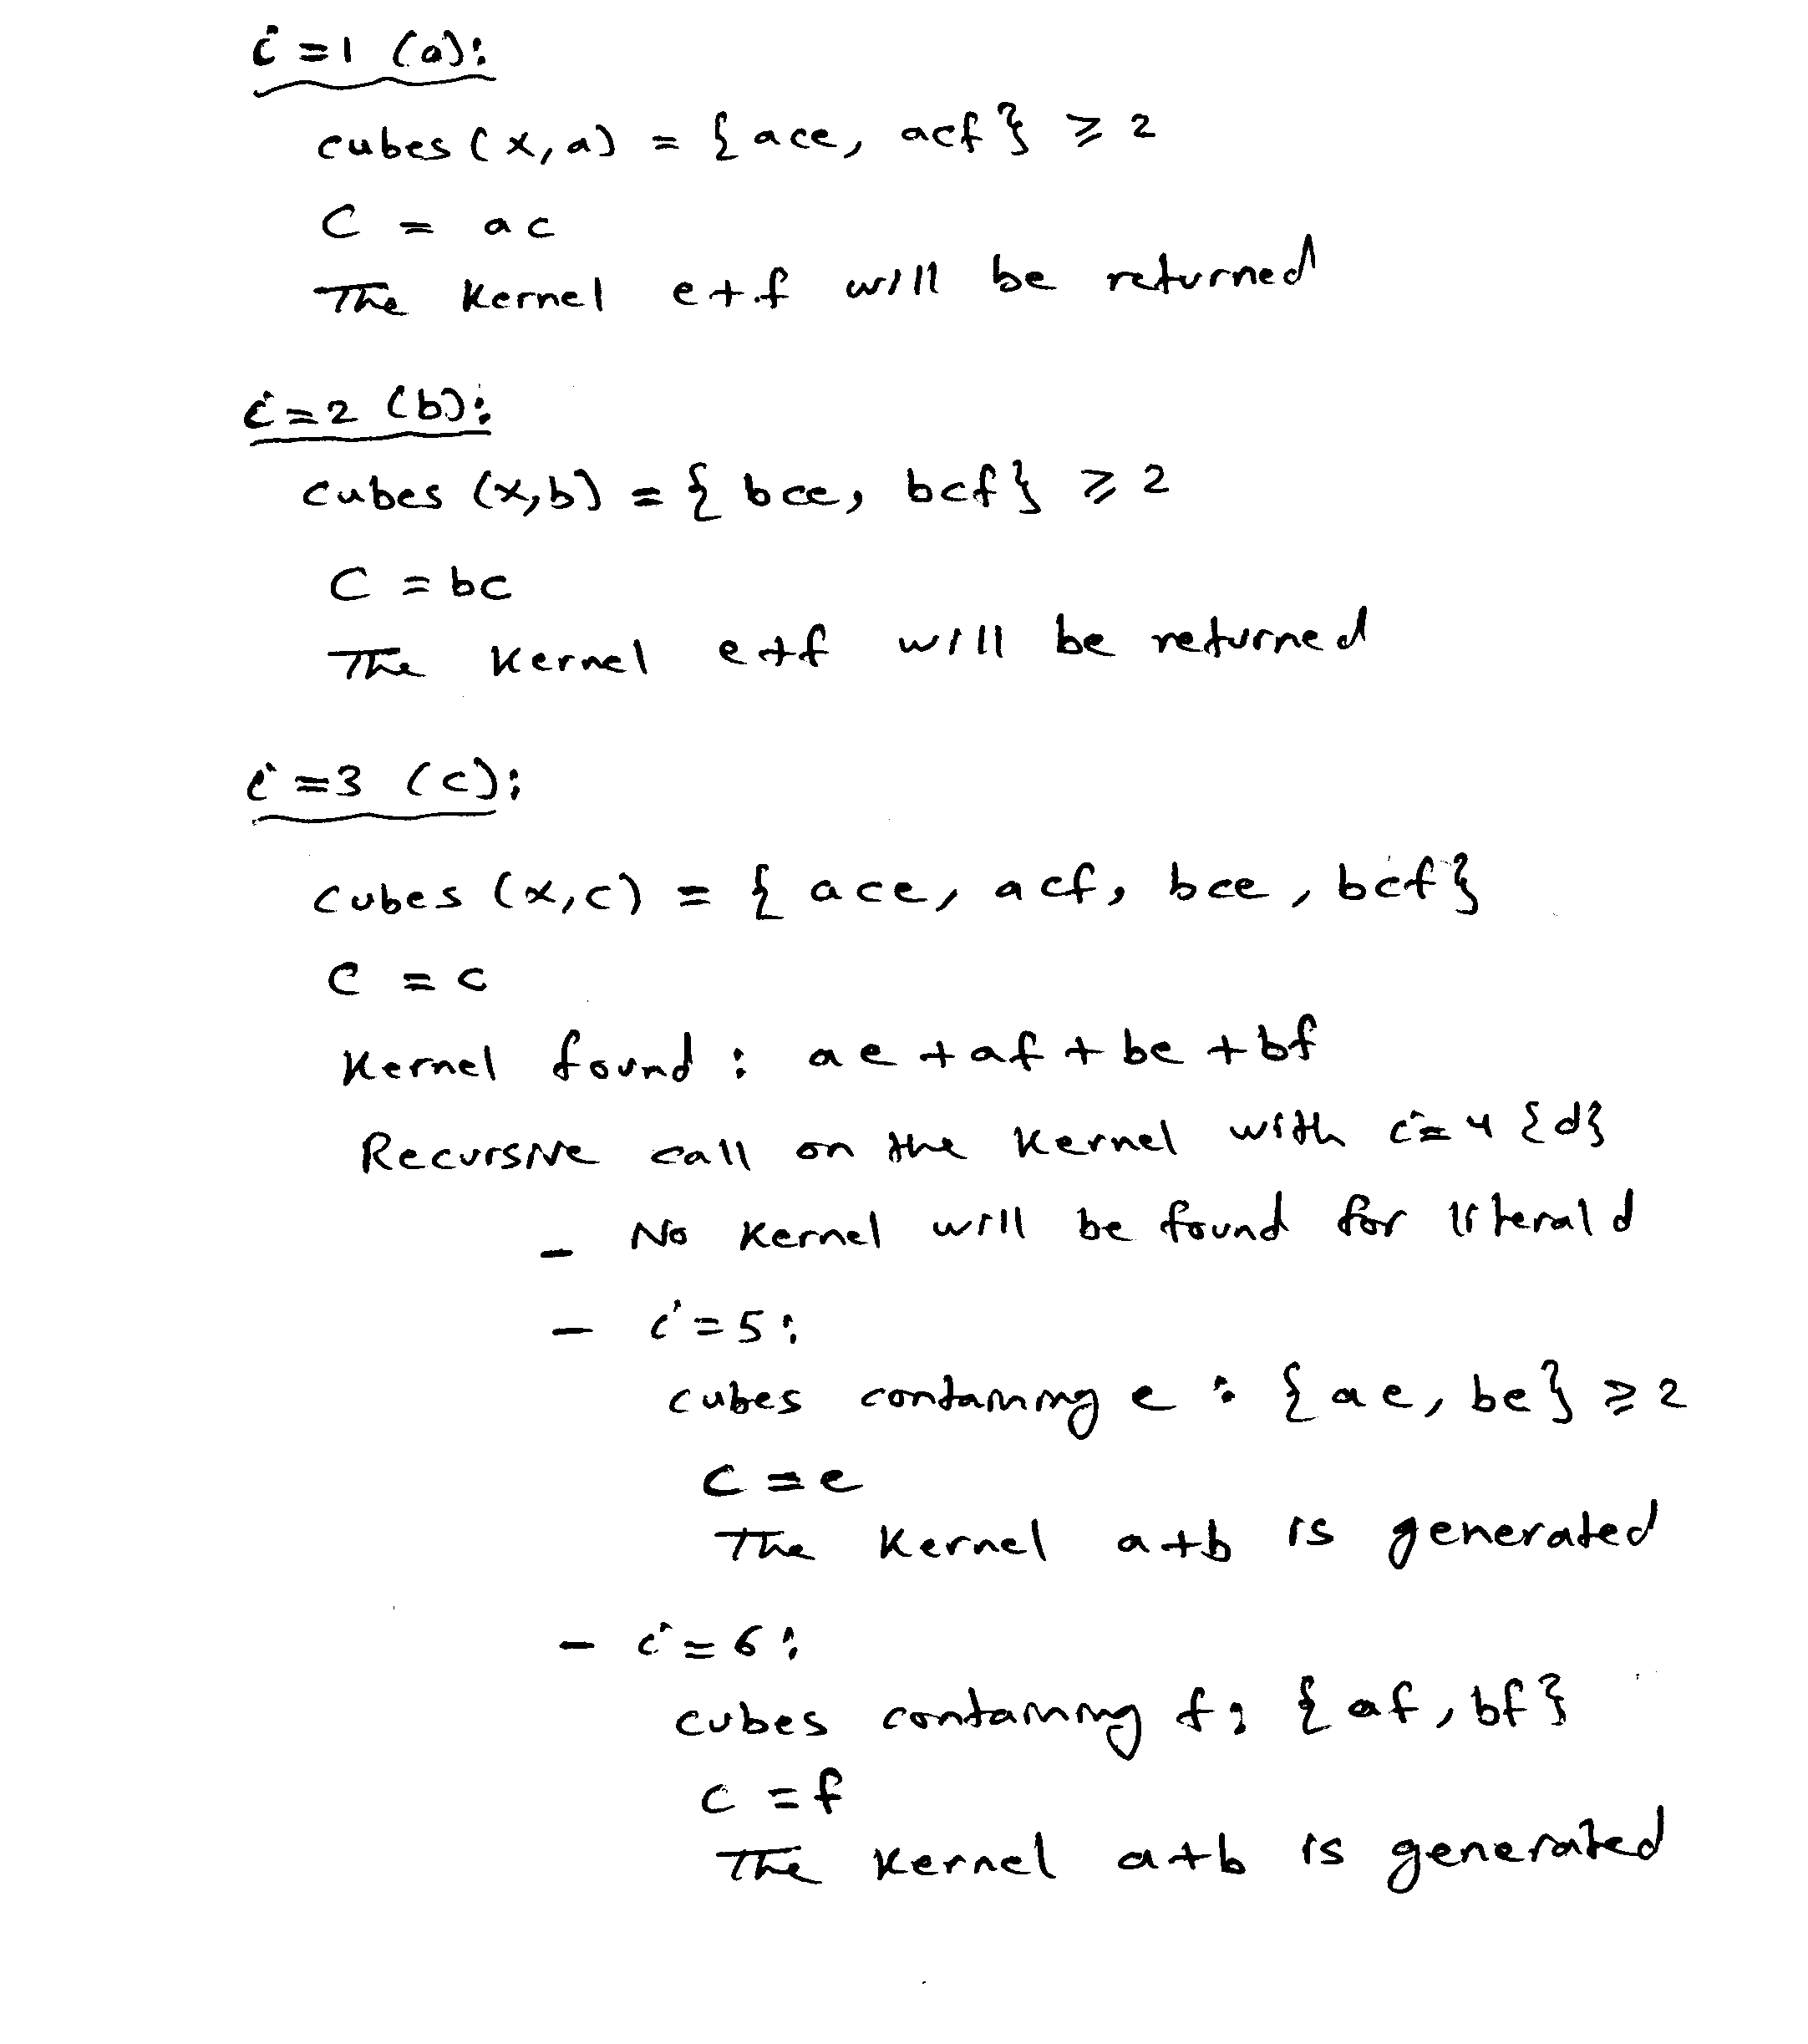 i=1 (a):
cubes (x,a) = { ace, acf } ≥ 2
C = ac
The Kernel e+f will be returned
i=2 (b):
cubes (x,b) = { bce, bcf } ≥ 2
C = bc
The Kernel e+f will be returned
i=3 (c):
cubes (x,c) = { ace, acf, bce, bcf }
C = c
Kernel found : ae + af + be + bf
Recursive call on the Kernel with i=4 {d}
- No Kernel will be found for literal d
- i=5:
cubes containing e : { ae, be } ≥ 2
C = e
The Kernel a+b is generated
- i=6:
cubes containing f: { af, bf }
C = f
The Kernel a+b is generated